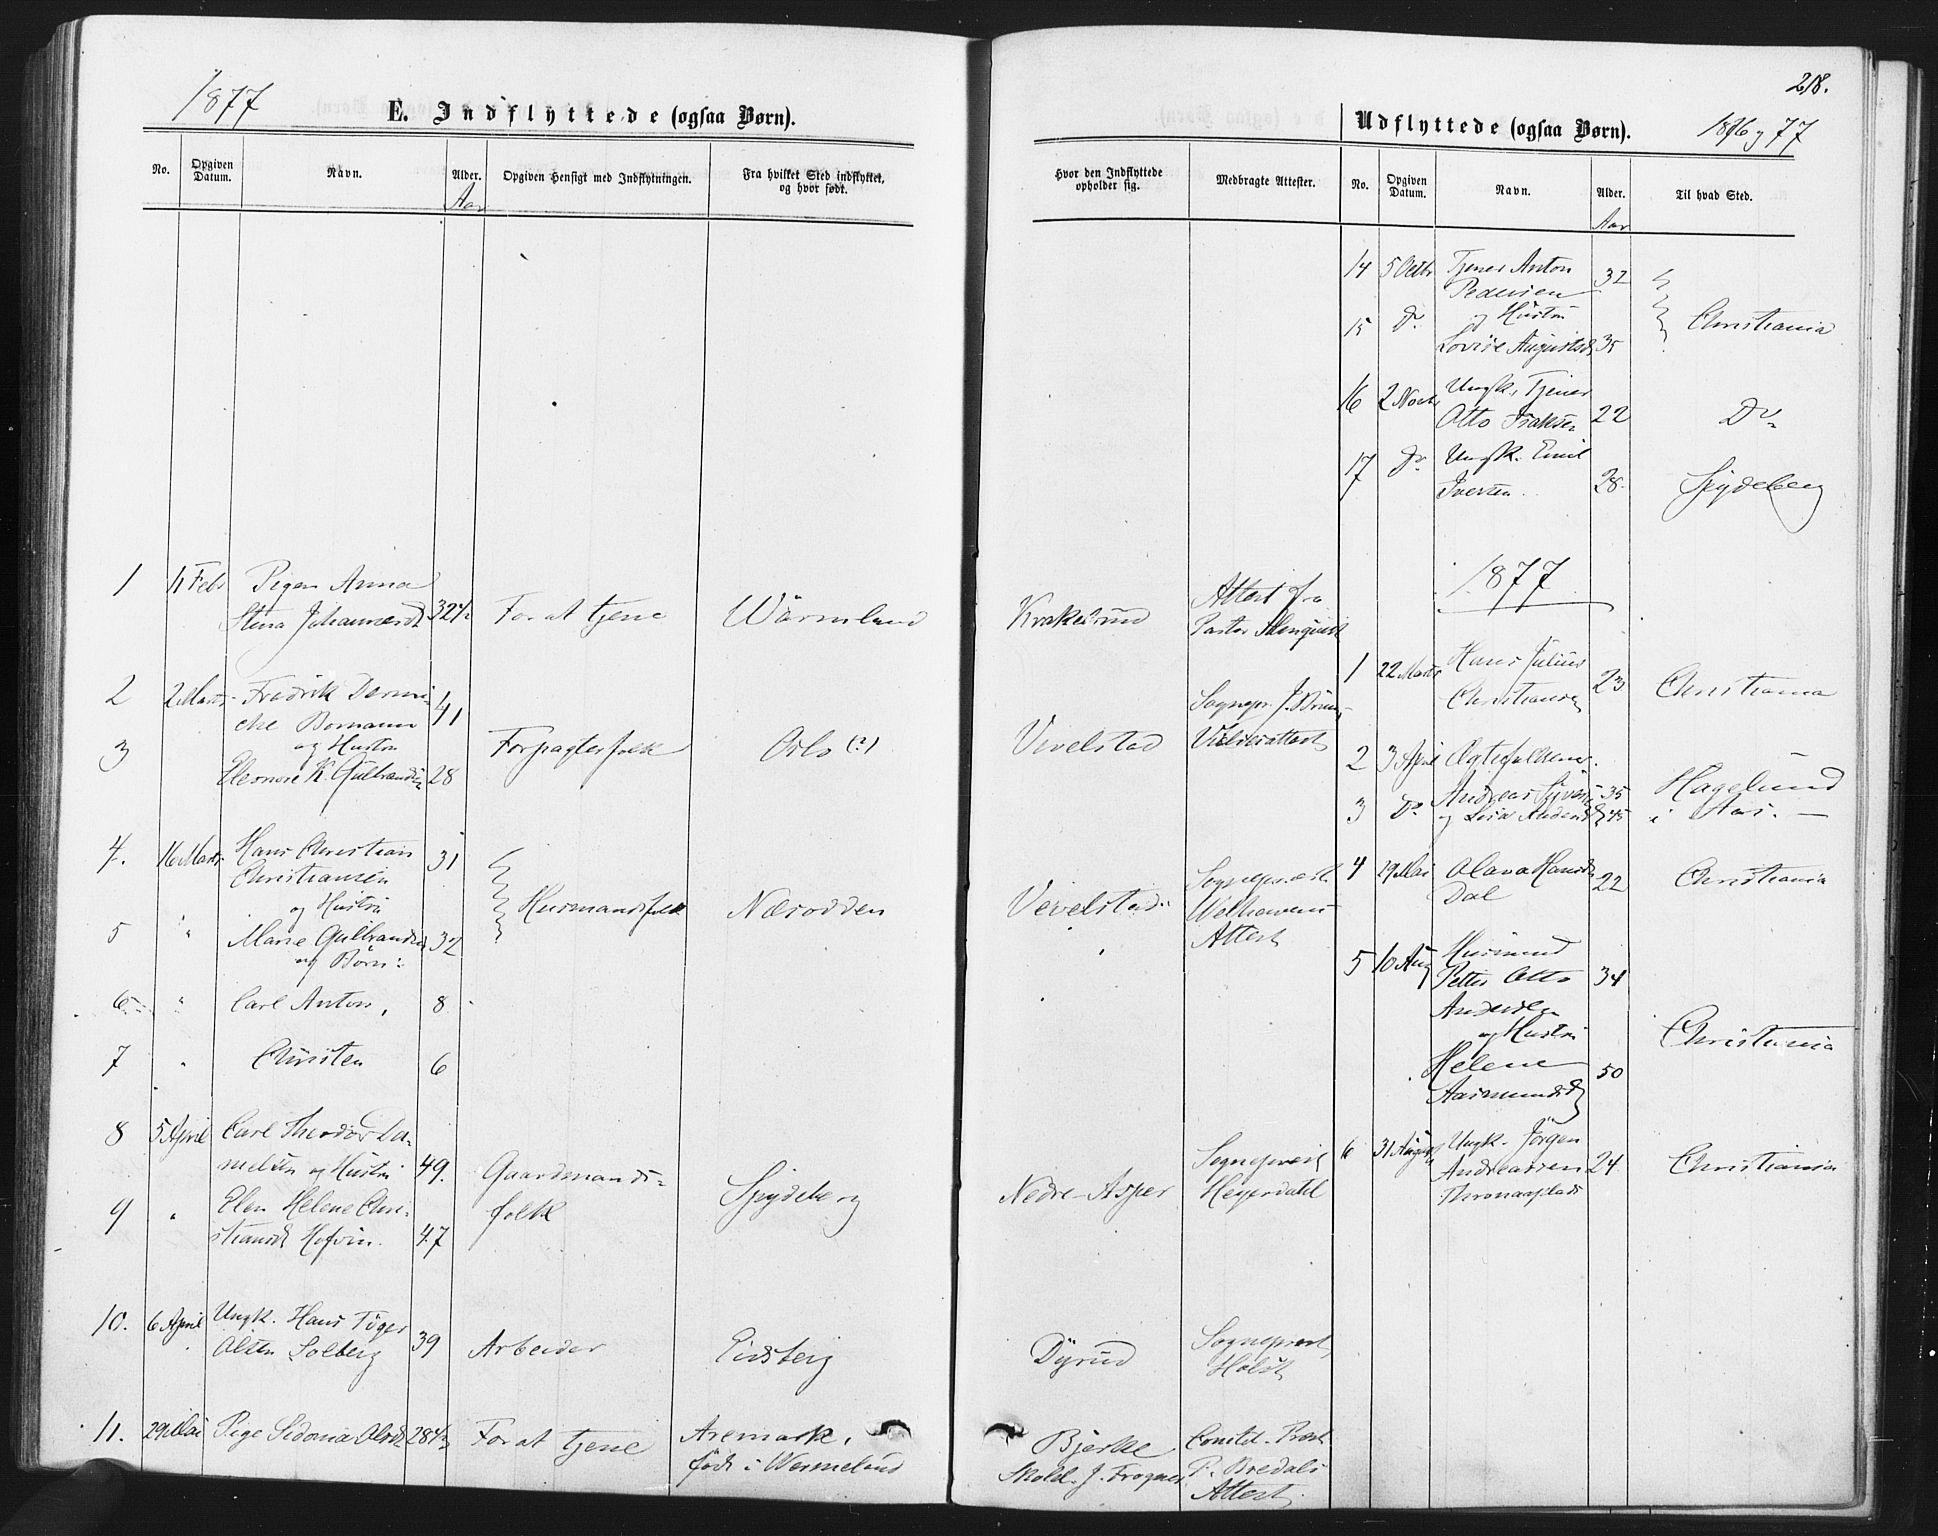 1877
E. Indflyttede (ogsaa Børn).
No. Opgiven Datum. Navn. Alder. Opgiven Hensigt med Indflytningen. Fra hvilket Sted indflyttet, og hvor født.
Aar
1 11 Febr Pigen Anna
Stina Johannesd 32 1/2 For at tjene Wärmland
2 2 Marts Fredrik Domini-
che Bomann 41
og Hustru Forpagterfolk Oslo (?)
3 Eleonore K. Gulbrandsen 28
4. 16 Marts Hans Christian 31
Christiansen
og Hustru Husmandsfolk Næsodden
5 " Marie Gulbrandsd 32
og Børn:
6 " Carl Anton, 8
7 " Christen 6
8 5 April Carl Theodor Da-
nielsen og Hustru 49. Gaardmands-
9 " Elen Helene Chri- folk Spydeberg
stiansd Hofvin. 47
10. 6 April Ungk. Hans
Olsen Solberg 39 Arbeider Eidsberg
11. 29 Mai Pige Sidonia Olsd 28 1/2 For at tjene Aremark,
født i Wermelund
218.
Udflyttede (ogsaa Børn). 1876 og 77
Hvor den Indflyttede opholder sig. Medbragte Attester. No. Opgiven Datum. Navn. Alder. Til hvad Sted.
Aar
14 5 Octbr Tjener Anton 32
Pedersen
og Hustru
15 Do Lovise Augustsd 35 Christiania
16 2 Novbr Ungk. Tjener
Otto Isaksen 22 Do
17 Do Ungk. Emil
Iversen 28. Spydeberg
1877
Attest fra
Krakesrud Pastor
1 22 Marts Hans Julius
Christiansen 23 Christiania
Sognepr. J. Bruun
Vevelstad Vielsesattest
2 3 April Ægtefolkene
3 Do Andreas 35 Hagelund
og Lise 45 i Aas.
4 29 Mai Olava Hansd
Dal 22 Christiania
Sognepræst
Vevelstad Welhavens
Attest
5 10 Aug Husmand
Petter Otto 34
Andersen
og Hustru Christiania
Helene
Aasmundsd 50
6 31 August Ungk. Jørgen
Andreassen 24 Christiania
Thronaasplads
Sognepræst
Nedre-Asper Heyerdahl
Sognepræst
Dyrud Holst
Bjerke Constd. Præst
Skold. J. Frogner P. Bredals
Attest